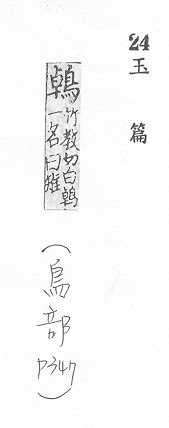 24
玉篇
鵫 竹教切白鵫
一名曰雉
(鳥部
P347)